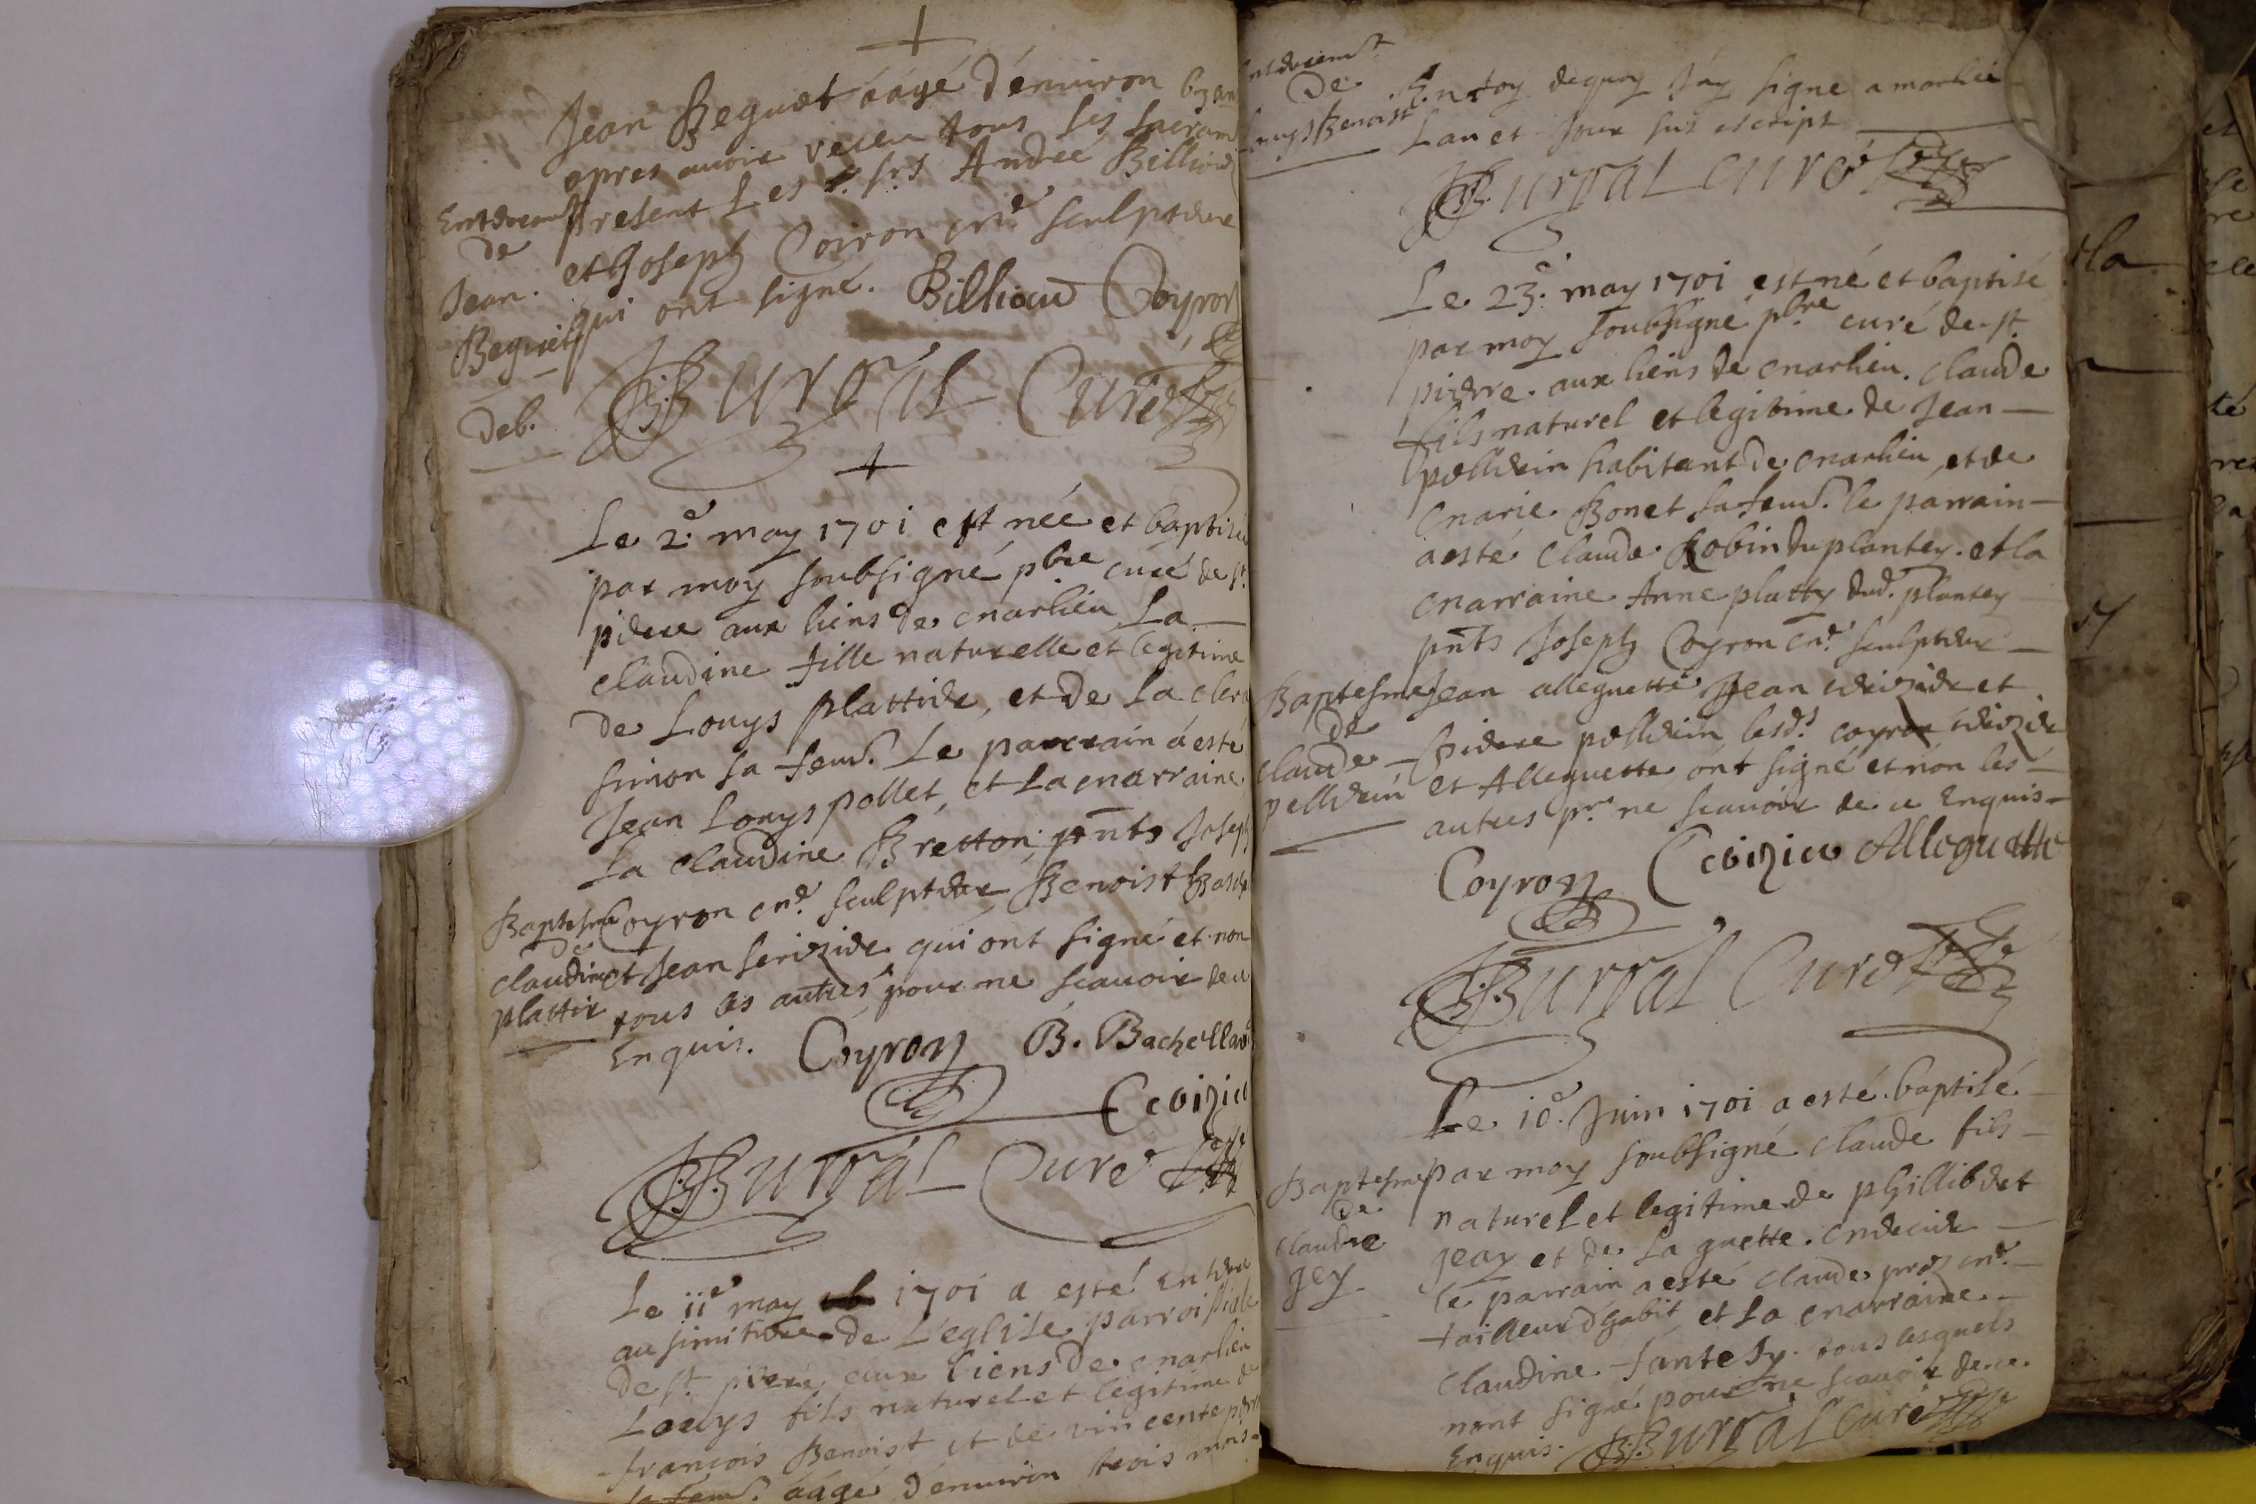 Jean Beguet áágé d'énuiron 63 an
apres auoir receu tous ses sacram
present Les srs André Billioud
et Joseph Coiron mre sculpteure
qui ont signé. Billioud Coyron
Enterrement
de
Jean
Beguet
deb.
BBurral Curé
Le 2e may 1701 est née et baptizée
par moy soubsigné pbre curé de st.
pierre aux liens de marlieu La
claudine fille naturelle et legitime
de Louys plattier, et de la clera
simon sa fem. Le parrain á esté
Jean Louys pollet, et La marraine
La claudine Bretton pnts Joseph
Coyron me. sculpteur Benoist
et Jean serizier qui ont signé et non
tous les autres pour ne scauoir de ce
Enquis. Coyron B. Bachellard
Baptesme
de
claudine
plattier
BBurral Curé
Le 11e may 1701 a esté Enterré
au simitiere de L'eglise parroissiale
de st. pierre aux liens de marlieu
Louys fils naturel et legitime de
francois Benoist et de vincente
sa fem. áágé d'énuiron trois mois
Enterrement
de
Louys Benoist
En foy dequoy J'ay signé a marlieu
Lan et Jour sus escript
BBurral curé
Le 23e. may 1701 est né et baptisé
par moy soubsigné pbre curé de st.
pierre aux liens de marlieu. claude
fils naturel et legitime de Jean
pellerin habitant de marlieu et de
marie Bonet sa fem. le parrain
a esté claude Robin du plantey. et la
marraine Anne platty dud. plantey
pnts Joseph Coyron me. sculpteur
Jean alleguette Jean cerizier et
pierre pellerin lesds. coyron cerizier
et Alleguette ont signé et non les
autres pr. ne scauoir de ce Enquis
Baptesme
de
claude
pellerin
Coyron Cerizier Alleguette
BBurral Curé
Le 10e. Juin 1701 a esté baptisé
par moy soubsigné claude fils
naturel et legitime de phillibert
Jeay et de La guette mercier
le parrain a esté claude proz me.
tailleur d'habit et La marraine
claudine tous lesquels
nont signé pour ne scauoir de ce
Enquis. BBurral Curé
Baptesme
de
claude
Jey